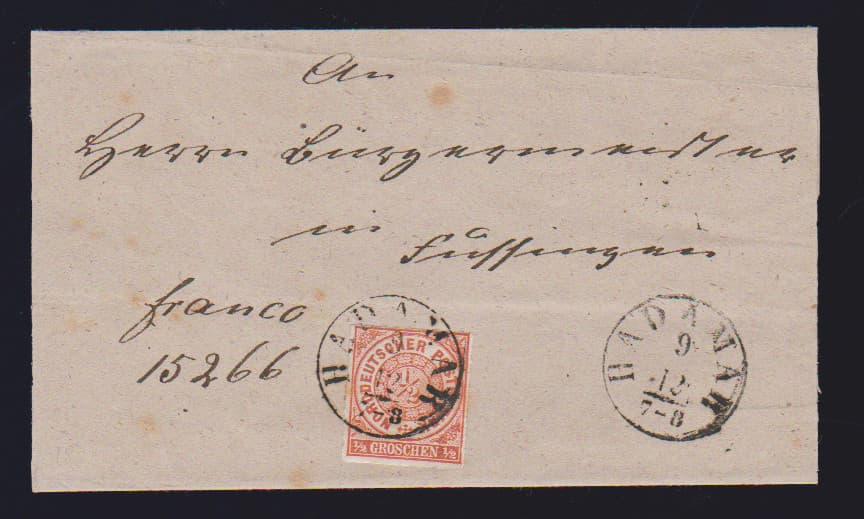 An
Herrn Bürgermeister
in
Fussingen
franco
15266
HADAMAR
8
NORDDEUTSCHER POSTBEZIRK
1/2
½ GROSCHEN ½
HADAMAR
9
12
7-8